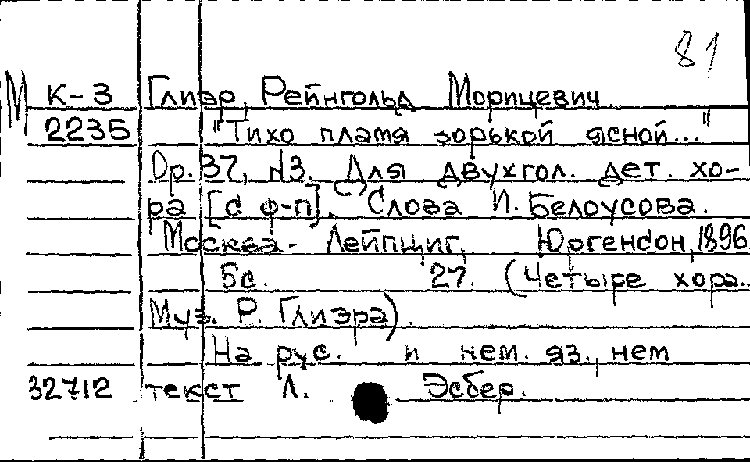 81
М К-3 Глиэр, Рейнгольд Морицевич
2235 "Тихо пламя зорькой ясной..."
Op. 37, №3. Для двухгол. дет. хо-
ра [с ф-п]. Слова И. Белоусова.
Москва - Лейпциг, Юргенсон, 1896
5с. 27. (Четыре хора.
Муз. Р. Глиэра).
На рус. и нем. яз., нем
32712 текст Л. Эсбер.